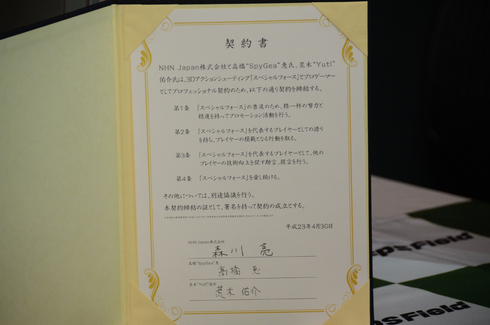 契約書
NHN Japan株式会社と高橋“SpyGea”恵氏、荒木“Yuti”
佑介氏は、3Dアクションシューティング「スペシャルフォース」でプロゲーマー
としてプロフェッショナル契約のため、以下の通り契約を締結する。
第1条 「スペシャルフォース」の普及のため、精一杯の努力と
精進を持ってプロモーション活動を行う。
第2条 「スペシャルフォース」を代表するプレイヤーとしての誇り
を持ち、プレイヤーの模範となる行動を取る。
第3条 「スペシャルフォース」を代表するプレイヤーとして、他の
プレイヤーの技術向上を促す助言、提言を行う。
第4条 「スペシャルフォース」を愛し続ける。
その他については、別途協議を行う。
本契約締結の証として、署名を持って契約の成立とする。
平成23年4月30日
NHN Japan株式会社
森川 亮
高橋“SpyGea”恵
高橋 恵
荒木“Yuti”佑介
荒木 佑介
psField
psField